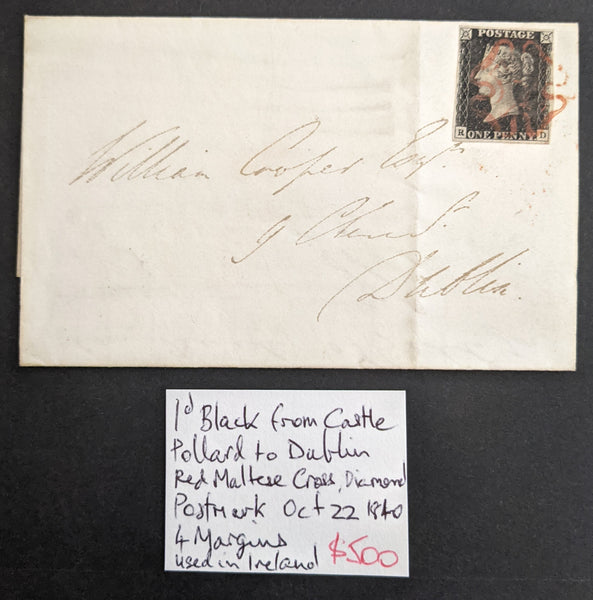 POSTAGE
R ONE PENNY D
William Cooper Esqr.
9
Dublin.
1d Black from Castle
Pollard to Dublin
Red Maltese Cross, Diamond
Postmark Oct 22 1840
4 Margins
used in Ireland $500